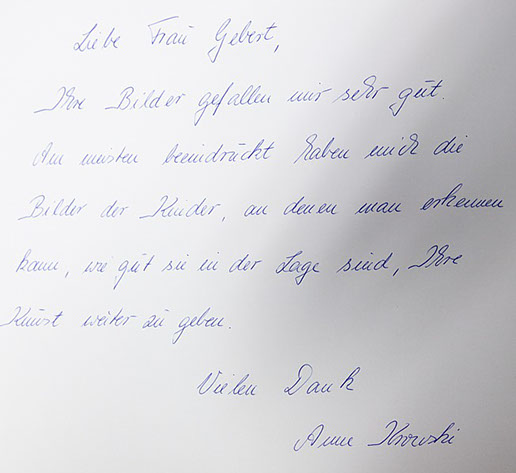 Liebe Frau Gebert,
Ihre Bilder gefallen mir sehr gut.
Am meisten beeindruckt haben mich die
Bilder der Kinder, an denen man erkennen
kann, wie gut sie in der Lage sind, Ihre
Kunst weiter zu geben.
Vielen Dank
Anne